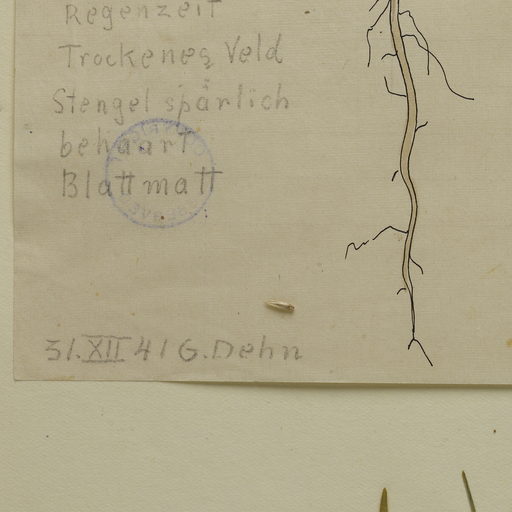 Regenzeit
Trockenes Veld
Stengel spärlich
behaart
Blattmatt
31.XII 41 G. Dehn